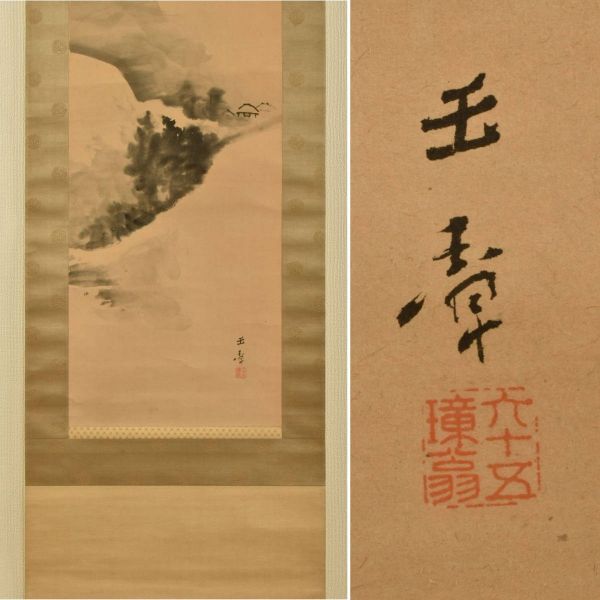 玉章
六十五
璋翁
玉章
六十五
璋翁